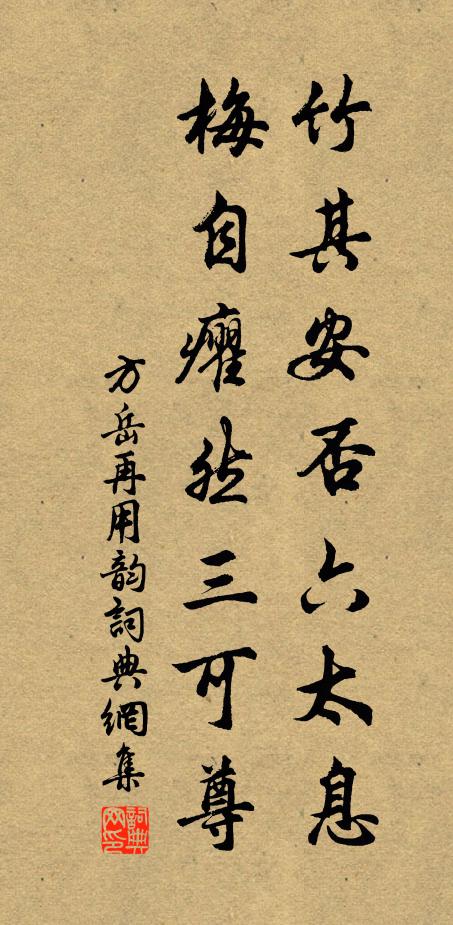 竹其安否六太息
梅自癯然三可尊
方岳再用韵詞典網集
詞典网印